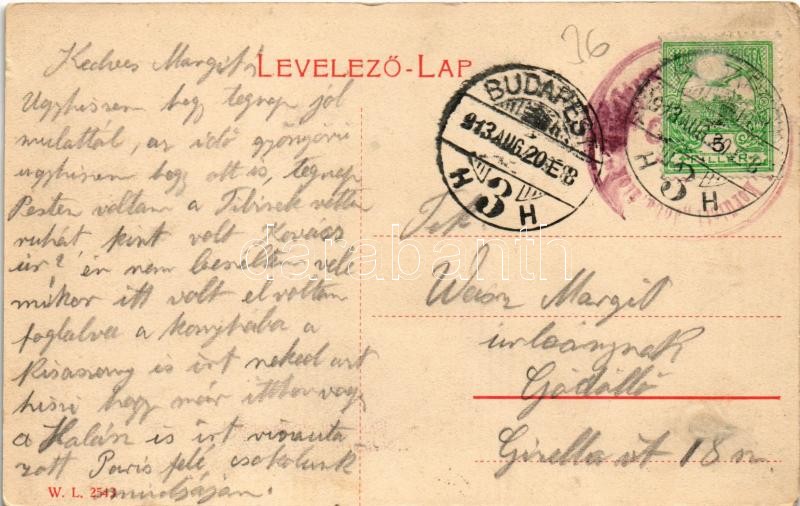 36
LEVELEZŐ-LAP
Kedves Margit!
Ugyhiszem hogy tegnap jól
mulattál, az idő gyönyörű
ugyhiszem hogy ott is, tegnap
Pesten voltam a Tibisek vettem
ruhát kint volt Kovács
úr? én nem beszéltem vele
mikor itt volt el voltam
foglalva a konyhába a
kisasszony is irt neked azt
hiszi hogy már itthon vagy
a Halász is irt visszauta
zott Paris felé, csokolunk
W. L. 2543
BUDAPEST
913.AUG.20.E8
H 3 H
913.AUG.20
H 3 H
5
FILLÉR
Tek.
Weisz Margit
urleánynak
Gödöllő
Gizella út 18 sz.
darabanth